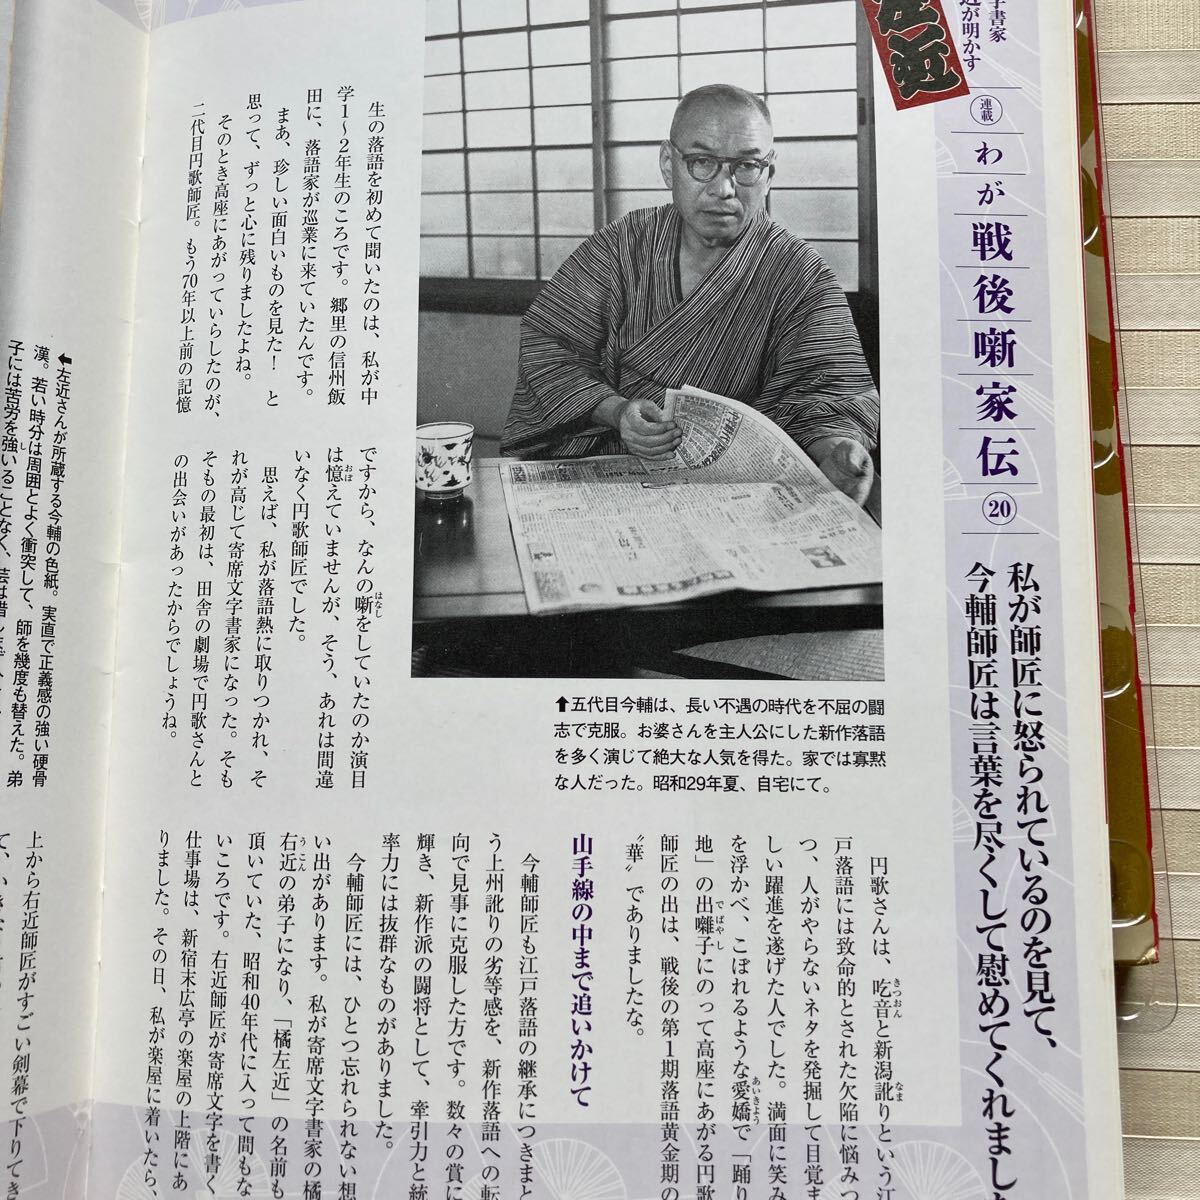 字書家
近が明かす
左近
連載
わが戦後噺家伝
⑳
私が師匠に怒られているのを見て、
今輔師匠は言葉を尽くして慰めてくれました
生の落語を初めて聞いたのは、私が中
学1〜2年生のころです。郷里の信州飯
田に、落語家が巡業に来ていたんです。
まあ、珍しい面白いものを見た！　と
思って、ずっと心に残りましたよね。
そのとき高座にあがっていらしたのが、
二代目円歌師匠。もう70年以上前の記憶
ですから、なんの噺をしていたのか演目
は憶えていませんが、そう、あれは間違
いなく円歌師匠でした。
思えば、私が落語熱に取りつかれ、そ
れが高じて寄席文字書家になった。そも
そもの最初は、田舎の劇場で円歌さんと
の出会いがあったからでしょうね。
⬆五代目今輔は、長い不遇の時代を不屈の闘
志で克服。お婆さんを主人公にした新作落語
を多く演じて絶大な人気を得た。家では寡黙
な人だった。昭和29年夏、自宅にて。
円歌さんは、吃音と新潟訛りという江
戸落語には致命的とされた欠陥に悩みつ
つ、人がやらないネタを発掘して目覚ま
しい躍進を遂げた人でした。満面に笑み
を浮かべ、こぼれるような愛嬌で「踊り
地」の出囃子にのって高座にあがる円歌
師匠の出は、戦後の第1期落語黄金期の
〝華〟でありましたな。
山手線の中まで追いかけて
今輔師匠も江戸落語の継承につきまと
う上州訛りの劣等感を、新作落語への転
向で見事に克服した方です。数々の賞に
輝き、新作派の闘将として、牽引力と統
率力には抜群なものがありました。
今輔師匠には、ひとつ忘れられない想
い出があります。私が寄席文字書家の橘
右近の弟子になり、「橘左近」の名前も
頂いていた、昭和40年代に入って間もな
いころです。右近師匠が寄席文字を書く
仕事場は、新宿末広亭の楽屋の上階にあ
りました。その日、私が楽屋に着いたら、
上から右近師匠がすごい剣幕で下りてき
⬅左近さんが所蔵する今輔の色紙。実直で正義感の強い硬骨
漢。若い時分は周囲とよく衝突して、師を幾度も替えた。弟
子には苦労を強いることなく、芸は惜